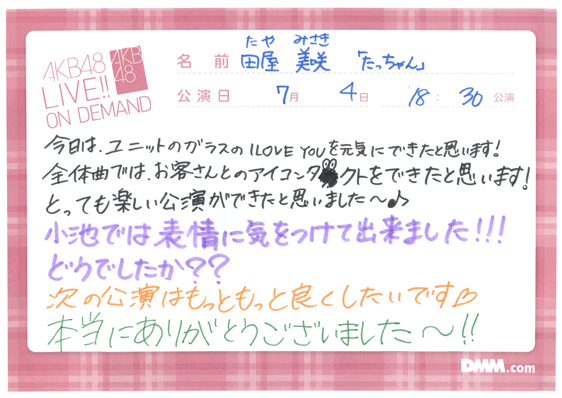 AKB48
LIVE!!
ON DEMAND
AKB
48
たや みさき
名前 田屋 美咲 「たっちゃん」
公演日 7月 4日 18:30 公演
今日は、ユニットのガラスの I LOVE YOUを元気にできたと思います!
全体曲では、お客さんとのアイコンタクトをできたと思います!
とっても楽しい公演ができたと思いました〜♪
小池では表情に気をつけて出来ました!!!
どうでしたか??
次の公演はもっともっと良くしたいです♡
本当にありがとうございました〜!!
DMM.com